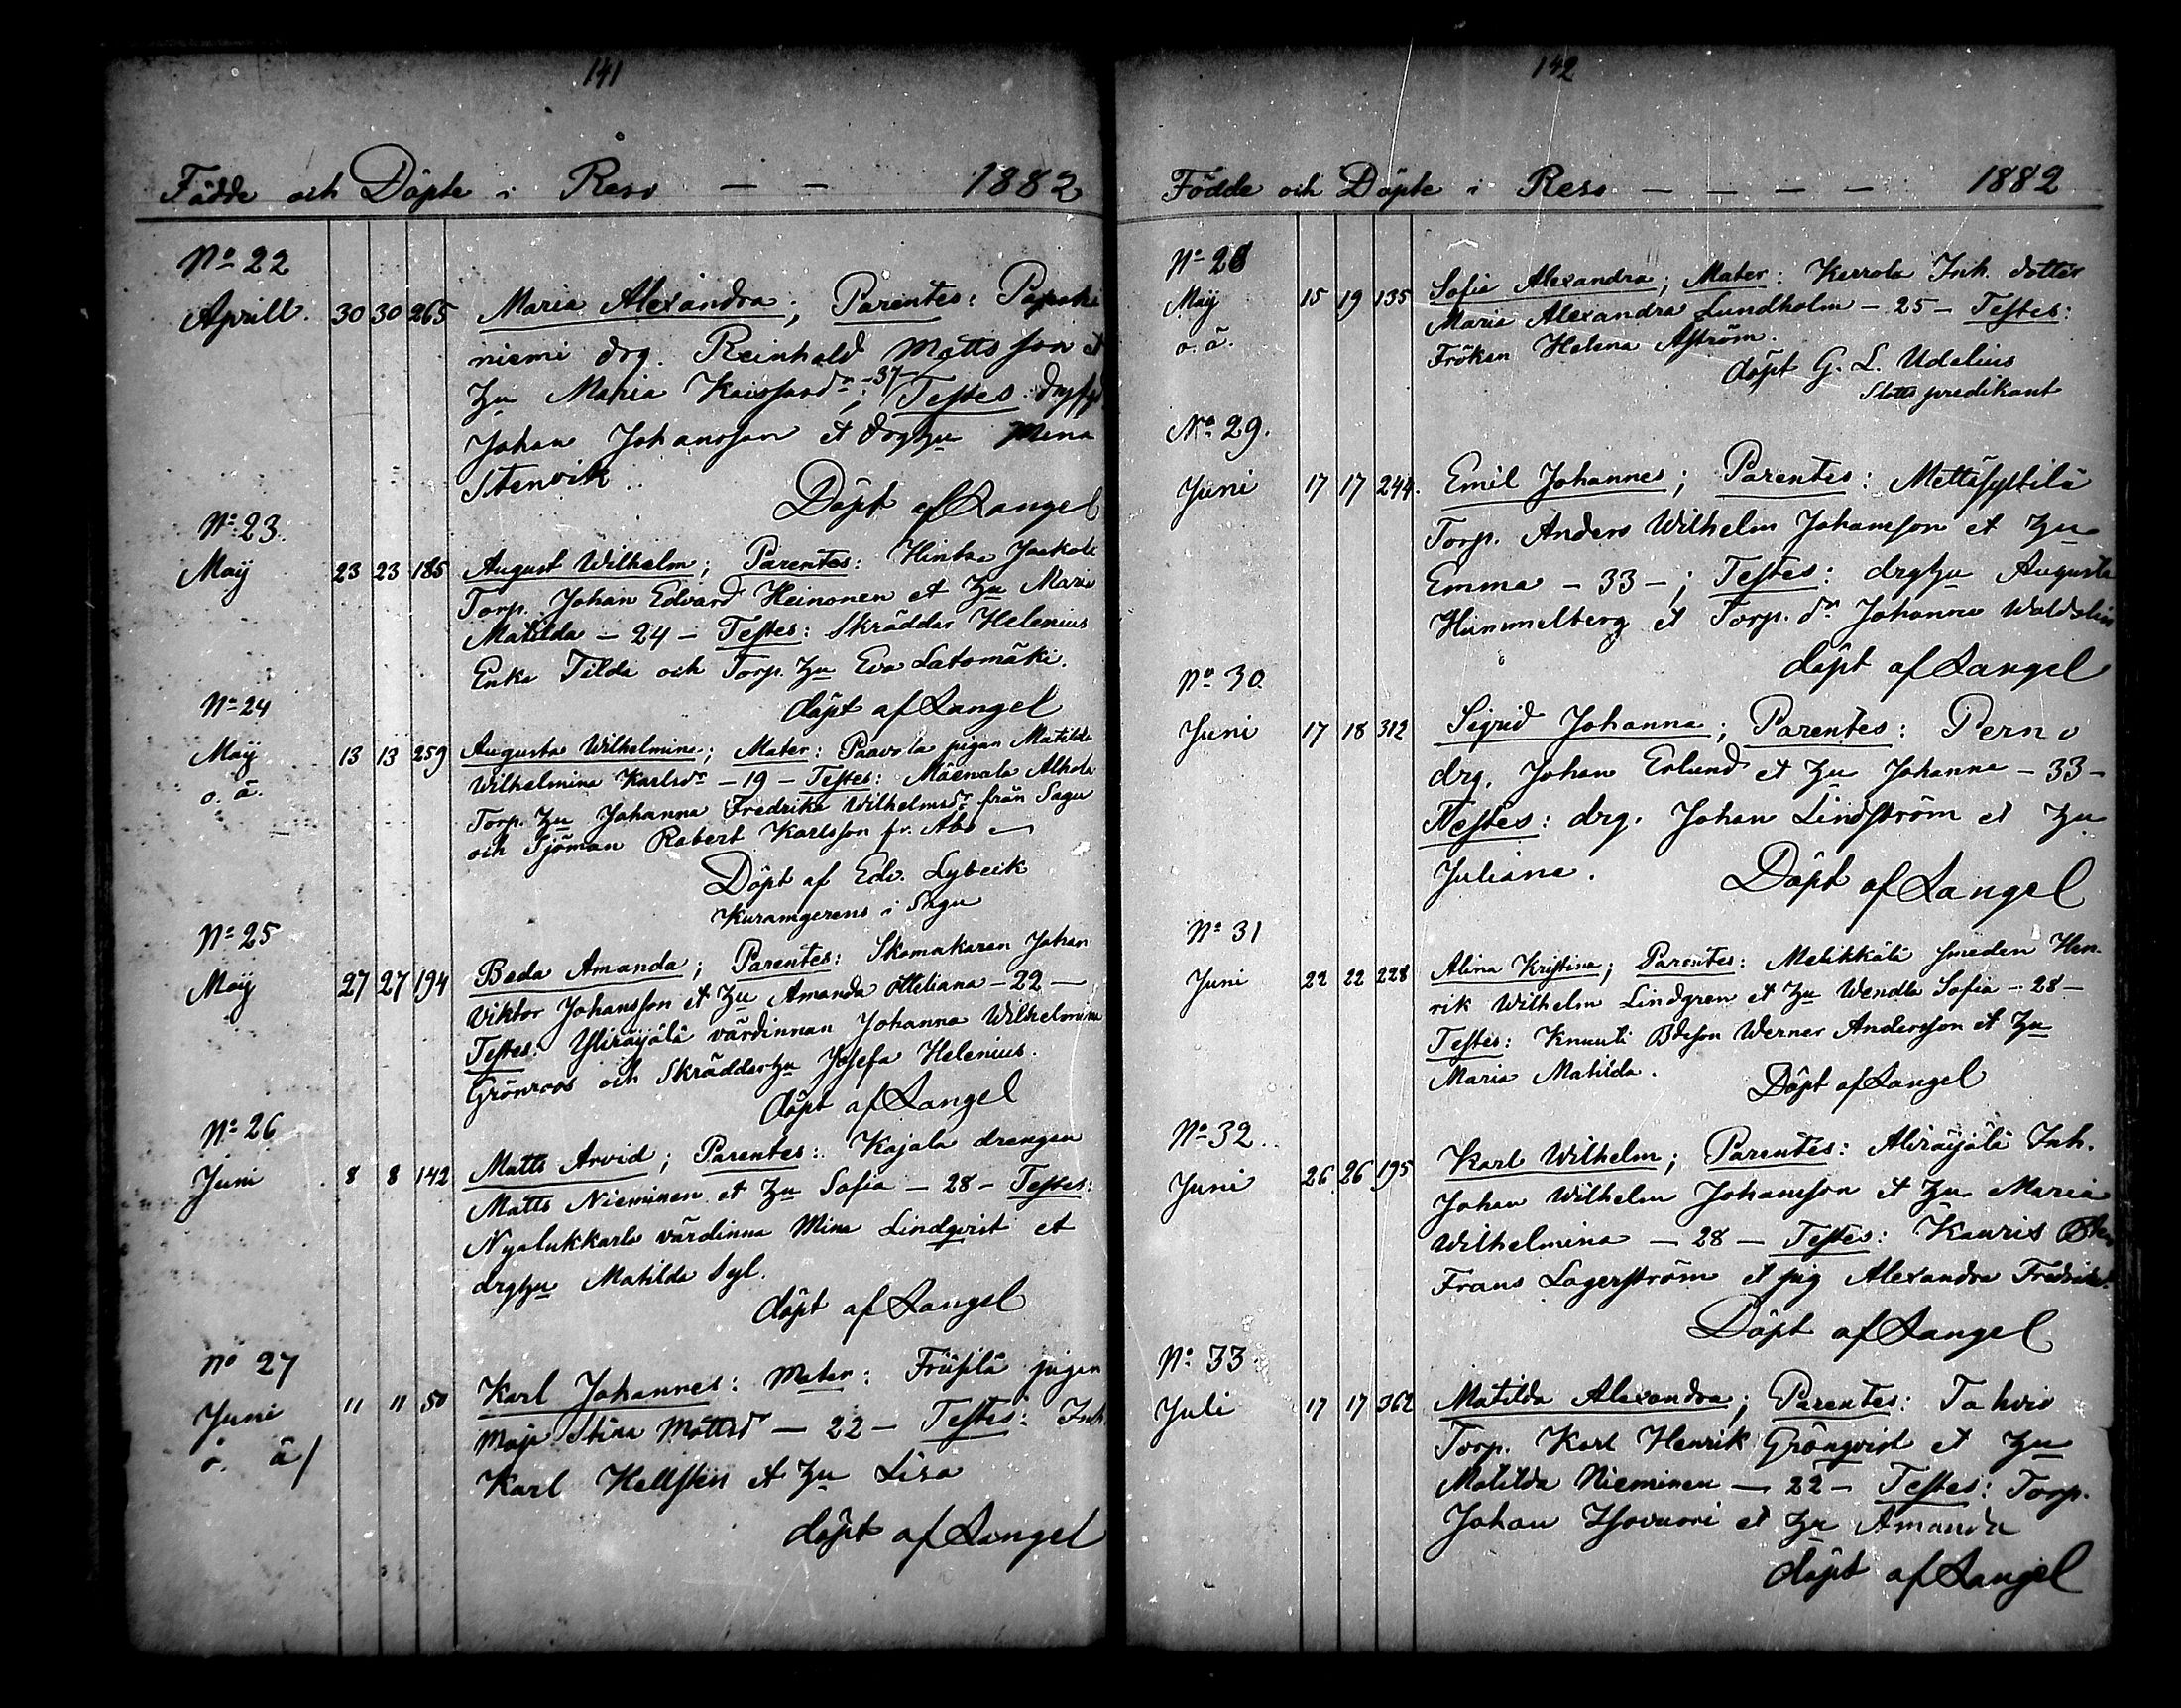 141
Födde och Döpte i Reso — — 1882
No 22
Aprill. 30 30 265 Maria Alexandra; Parentes:
niemi drg. Reinhold Mattsson et
hu Maria Kaisasdr -37-; Testes:
Johan Johansson et drghu Mina
Stenvik.
Döpt af Langel
No 23.
Maÿ 23 23 185 August Wilhelm; Parentes: Hintsa Jaakola
Torp. Johan Edvard Heinonen et hu Maria
Matilda — 24 — Testes: Skräddar Helenius
Enka Tilda och Torp. hu Eva Latomäki.
döpt af Langel
No 24
Maÿ 13 13 259 Augusta Wilhelmina; Mater: Paavola pigan Matilda
o. ä. Wilhelmina Karlsdr — 19 — Testes: Alhola
Torp. hu Johanna Fredrika Wilhelmsdr från Sagu
och Sjöman Robert Karlsson fr. Åbo
Döpt af Edv. Lybeck
i Sagu
No 25
Maÿ 27 27 194 Beda Amanda; Parentes: Skomakaren Johan
Viktor Johansson et hu Amanda Ottiliana — 22 —
Testes: Yliräÿälä värdinnan Johanna Wilhelmina
Grönroos och Skräddarhu Josefa Helenius.
döpt af Langel
No 26
Juni 8 8 142 Matts Arvid; Parentes: Kajala drengen
Matts Nieminen et hu Sofia — 28 — Testes:
Nyalukkarla värdinna Mina Lindqvist et
drghu Matilda Syl.
döpt af Langel
No 27
Juni 11 11 50 Karl Johannes: Mater: pigan
o. ä/ Maja Stina Mattsdr — 22 — Testes: Inh.
Karl Hellsten et hu Lisa
döpt af Langel
142
Födde och Döpte i Reso — — — — 1882
No 28
Maÿ 15 19 135 Sofia Alexandra; Mater: Kerrola Inh. dotter
o. ä. Maria Alexandra Lundholm — 25 — Testes:
Fröken Helena Åström.
döpt G. L. Udelius
Slottspredikant
No 29.
Juni 17 17 244. Emil Johannes; Parentes:
Torp. Anders Wilhelm Johansson et hu
Emma — 33 —; Testes: drghu Augusta
Hummelberg et Torp. dr Johanna
döpt af Langel
No 30
Juni 17 18 312 Sigrid Johanna; Parentes: Perno
drg. Johan Erlund et hu Johanna — 33 —
Testes: drg. Johan Lindström et hu
Juliana.
Döpt af Langel
No 31
Juni 22 22 228 Alina Kristina; Parentes: smeden Hen-
rik Wilhelm Lindgren et hu Wendla Sofia — 28 —
Testes: Knuuti Bdeson Werner Andersson et hu
Maria Matilda.
Döpt af Langel
No 32.
Juni 26 26 195 Karl Wilhelm; Parentes: Aliräÿälä Inh.
Johan Wilhelm Johansson et hu Maria
Wilhelmina — 28 — Testes: Kauris
Frans Lagerström et pig Alexandra
Döpt af Langel
No 33
Juli 17 17 362 Matilda Alexandra; Parentes: Tahvio
Torp. Karl Henrik Grönqvist et hu
Matilda Nieminen — 22 — Testes: Torp.
Johan Isovuori et hu Amanda
döpt af Langel